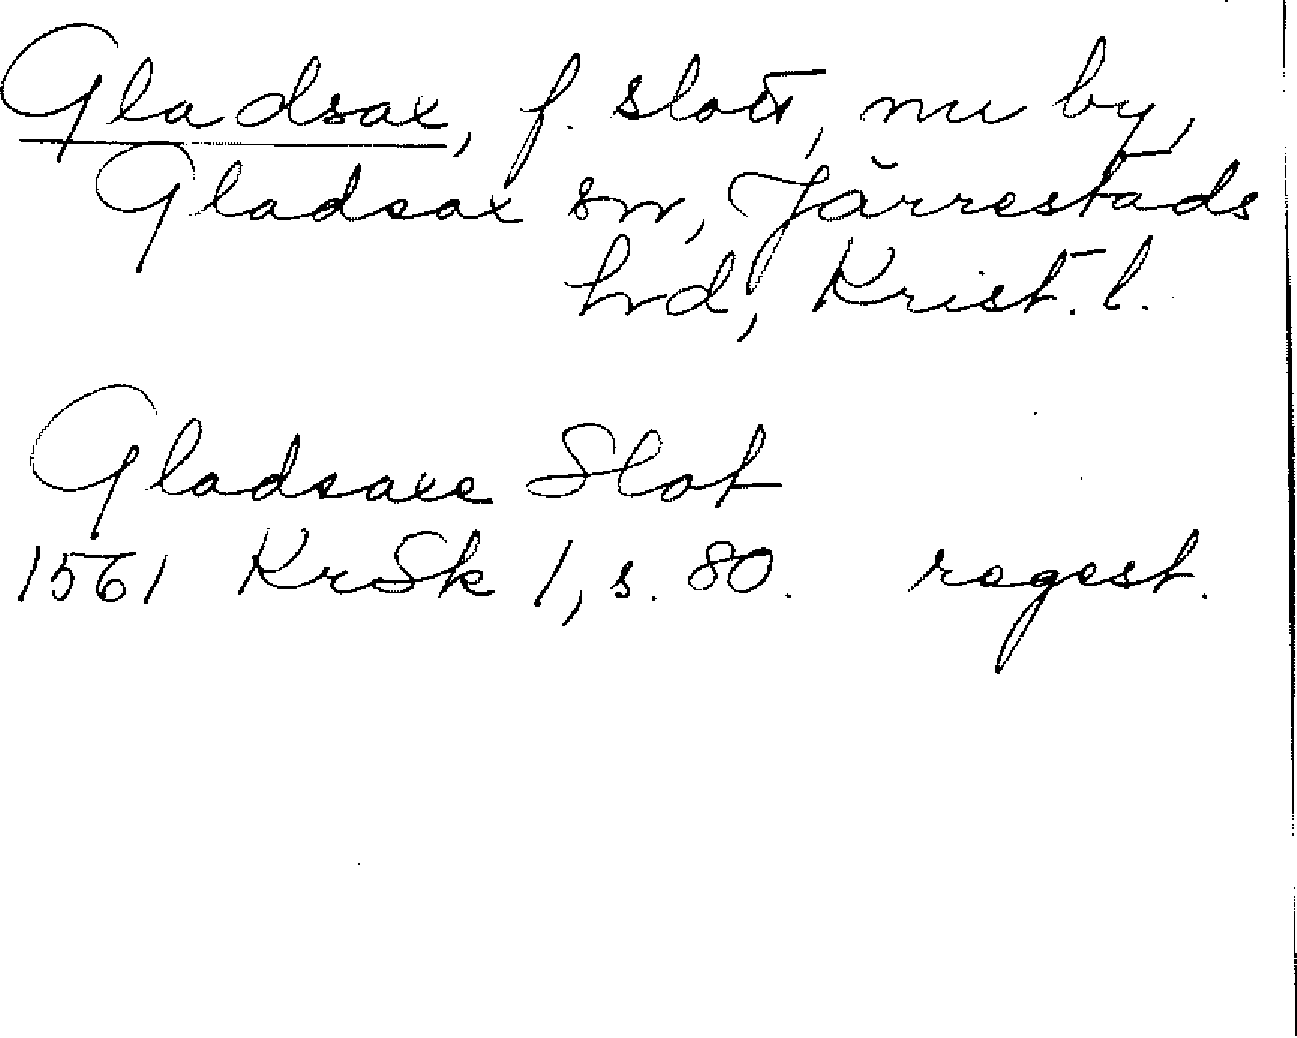 Gladsax, f. slott, nu by,
Gladsax sn, Järrestads
hrd, Krist. l.
Gladsaxe Slot
1561 KrSk 1, s. 80. regest.